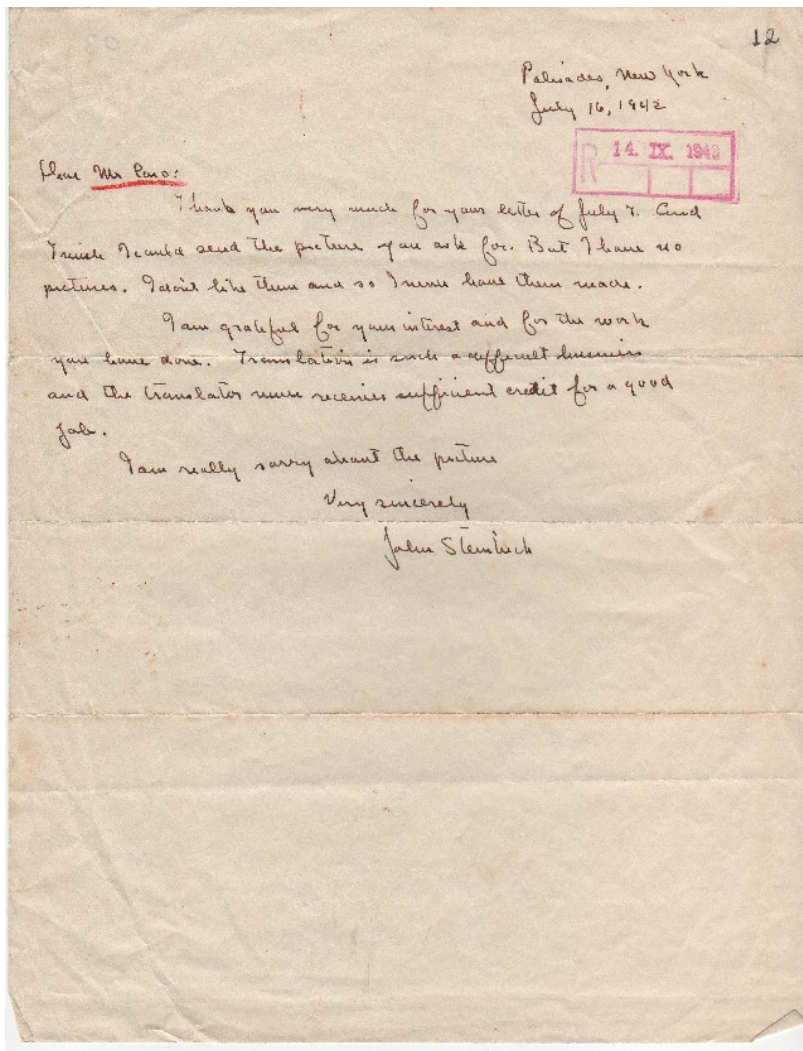 12
Palisades, New York
July 16, 1942
R 14. IX. 1942
Dear Mr
Thank you very much for your letter of July 7. And
I wish I could send the picture you ask for. But I have no
pictures. I don't like them and so I never have them made.
I am grateful for your interest and for the work
you have done. Translation is such a difficult business
and the translator never receives sufficient credit for a good
job.
I am really sorry about the picture
Very sincerely
John Steinbeck